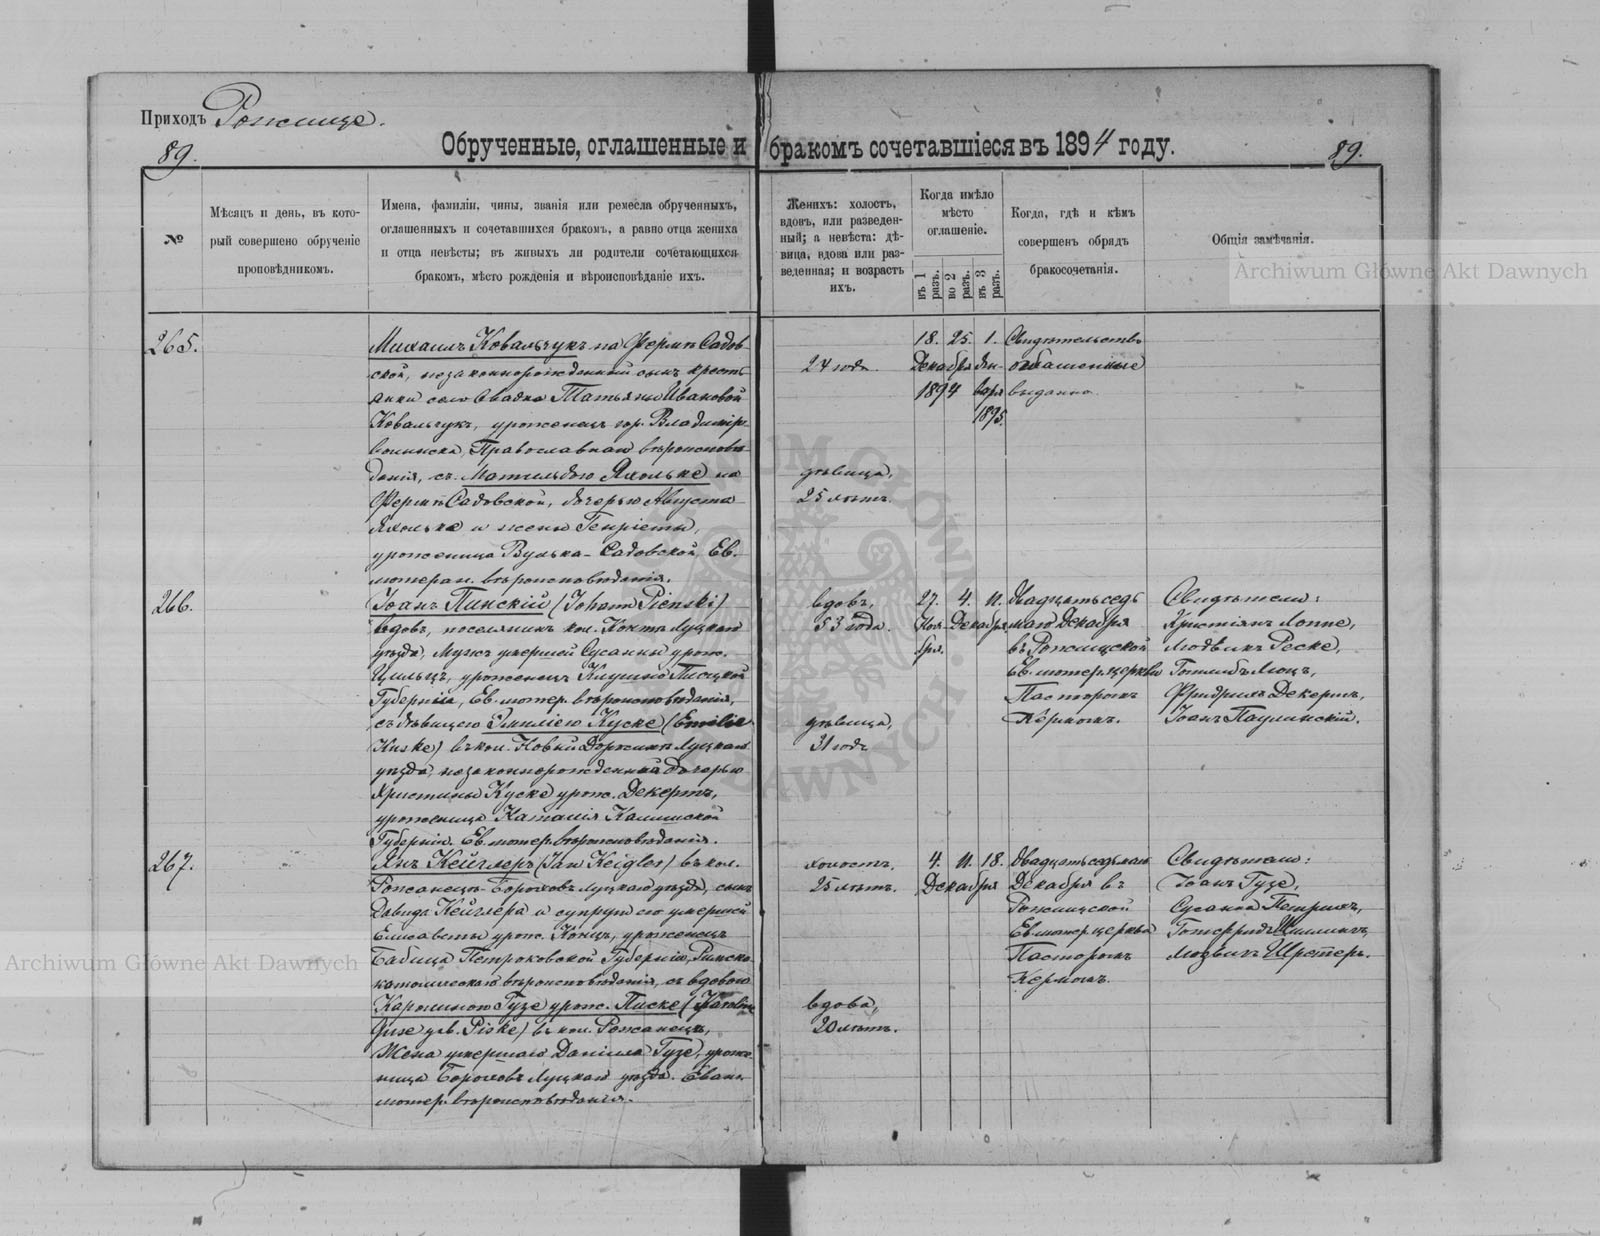 Приходъ Рожище.
89.
Обрученные, оглашенные и бракомъ сочетавшіеся въ 1894 году.
89.
№
Мѣсяцъ и день, въ кото-
рый совершено обрученіе
проповѣдникомъ.
Имена, фамиліи, чины, званія или ремесла обрученныхъ,
оглашенныхъ и сочетавшихся бракомъ, а равно отца жениха
и отца невѣсты; въ живыхъ ли родители сочетающихся
бракомъ, мѣсто рожденія и вѣроисповѣданіе ихъ.
Женихъ: холостъ,
вдовъ, или разведен-
ный; а невѣста: дѣ-
вица, вдова или раз-
веденная; и возрастъ
ихъ.
Когда имѣло
мѣсто
оглашеніе.
въ 1 разъ.
во 2 разъ.
въ 3 разъ.
Когда, гдѣ и кѣмъ
совершенъ обрядъ
бракосочетанія.
Общія замѣчанія.
Archiwum Główne Akt Dawnych
265.
Михаилъ Ковальчукъ на Фермѣ Садов-
ской, незаконнорожденный сынъ кресть-
янки село Свадка Татьяны Ивановой
Ковальчукъ, уроженецъ гор. Владиміръ-
волынска, Православнаго вѣроисповѣ-
данія, съ Матильдою Яхольке на
Фермѣ Садовской, дочерью Августа
Яхольке и жены Генріеты,
уроженица Вулька-Садовской, Ев.
лютеран. вѣроисповѣданія.
24 года.
дѣвица,
25 лѣтъ.
18. 25. 1.
Декабря Ян-
1894 варя
1895.
Свидѣтельство
оглашенные
выданно.
266.
Іоанъ Пинскій (Johann Pienski)
вдовъ, поселянинъ кол. Контъ Луцкаго
уѣзда, Мужъ умершей Сусанны урож.
Цильцъ, уроженецъ Клушно Плоцкой
Губерніи, Ев. лютер. вѣроисповѣданія,
съ дѣвицею Эмиліею Куске (Emilie
Kuske) въ кол. Новый Доржинь Луцкаго
уѣзда, незаконнорожденная дочерью
Христины Куске урож. Декертъ,
уроженица Наталія Калишской
Губерніи. Ев. лютер. вѣроисповѣданія.
вдовъ,
53 года.
дѣвица,
31 годъ
27. 4. 11.
Ноя- Декабря.
бря.
Двадцать седь-
маго Декабря
въ Рожищской
Ев. лютер. церкви
Пасторомъ
Кермомъ.
Свидѣтели:
Христіянъ Лоппе,
Людвикъ Реске,
Готлибъ Люцъ,
Фридрихъ Декертъ,
Іоанъ Паулинскій.
267.
Янъ Кейглеръ (Jan Keigler) въ кол.
Рожанецъ-Бороховъ Луцкаго уѣзда, сынъ
Давида Кейглера и супруги его умершей
Елисаветы урож. Концъ, уроженецъ
Бабица Петроковской Губерніи, Римско-
католическаго вѣроисповѣданія, съ вдовою
Каролиною Гузе урож. Писке (Karoline
Guse geb. Piske) въ кол. Рожанецъ,
Жена умершаго Даніила Гузе, уроже-
ница Бороховъ Луцкаго уѣзда. Еванг.
лютер. вѣроисповѣданія.
холостъ.
25 лѣтъ.
вдова,
20 лѣтъ.
4. 11. 18.
Декабря
Двадцать седьмаго
Декабря въ
Рожищской
Ев. лютер. церкви
Пасторомъ
Кермомъ.
Свидѣтели:
Іоанъ Гузе,
Сусанна Петрихъ,
Готфридъ Шиллингъ,
Людвикъ Шретеръ.
Archiwum Główne Akt Dawnych